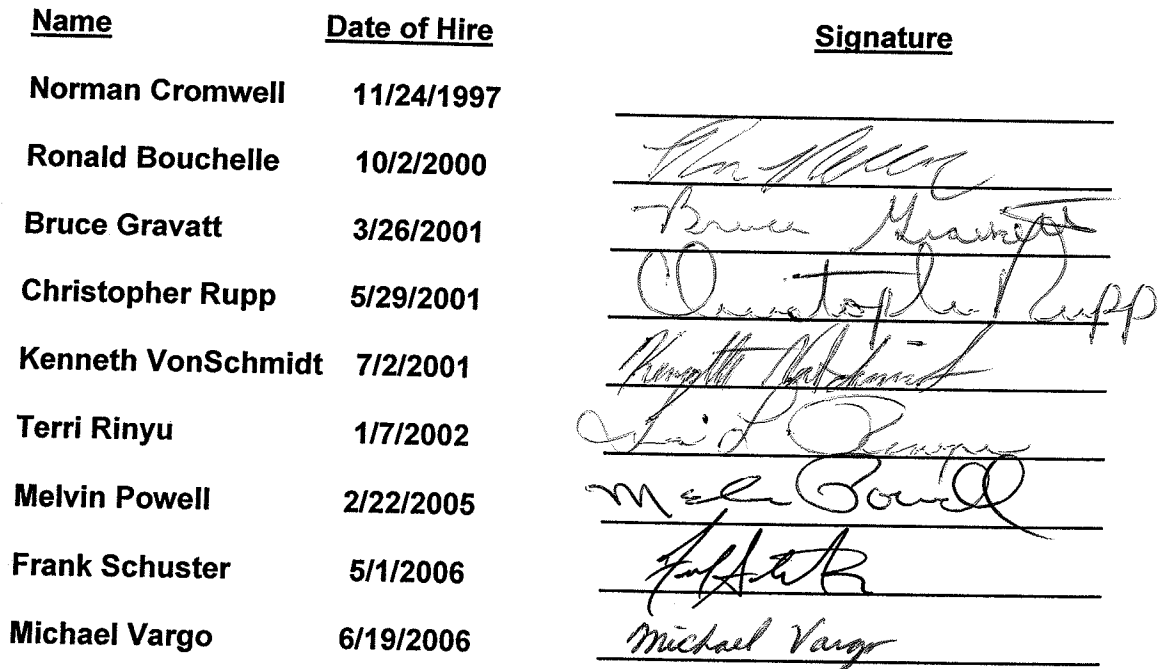 Name Date of Hire Signature
Norman Cromwell 11/24/1997
Ronald Bouchelle 10/2/2000
Bruce Gravatt 3/26/2001 Bruce Gravatt
Christopher Rupp 5/29/2001 Christopher Rupp
Kenneth VonSchmidt 7/2/2001 Kenneth VonSchmidt
Terri Rinyu 1/7/2002 Terri L Rinyu
Melvin Powell 2/22/2005 Melvin Powell
Frank Schuster 5/1/2006
Michael Vargo 6/19/2006 Michael Vargo